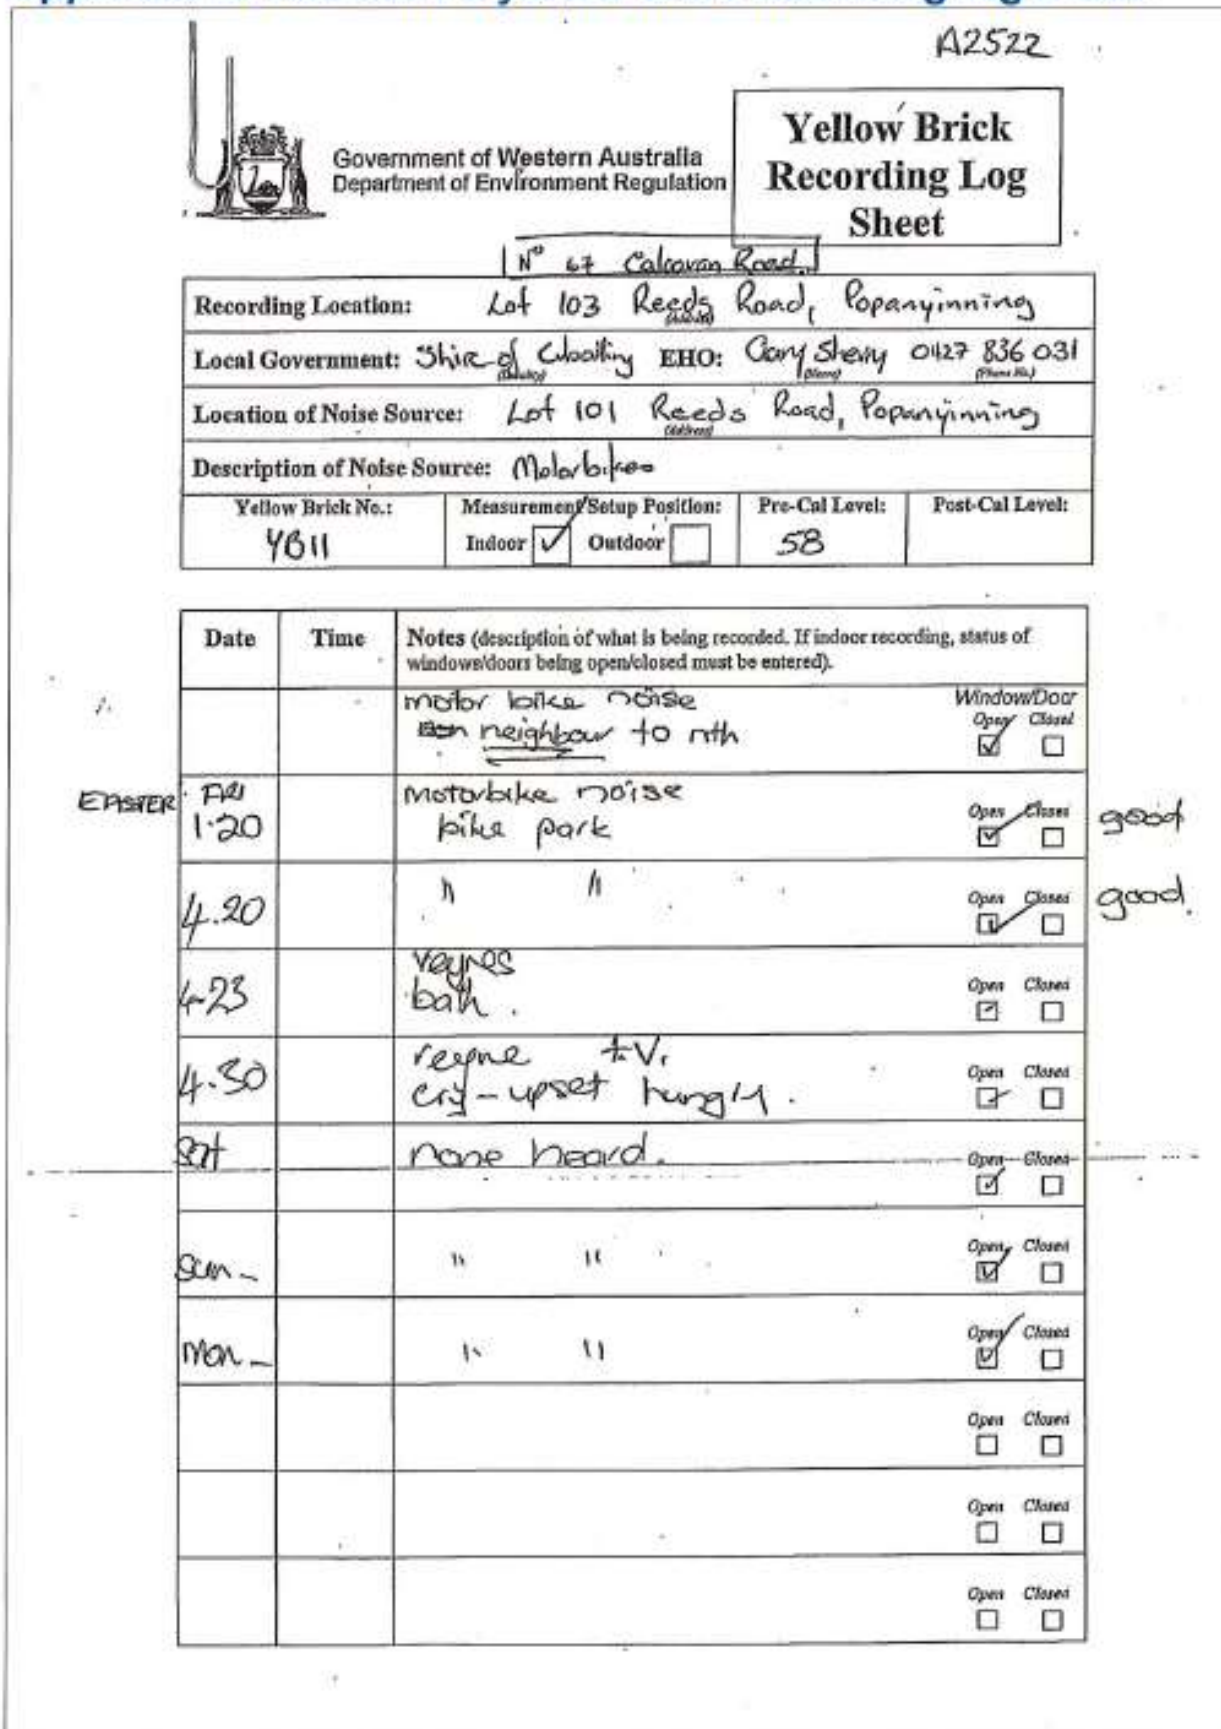 A2522
Government of Western Australia
Department of Environment Regulation
Yellow Brick
Recording Log
Sheet
No 67 Calcovan Road
Recording Location: Lot 103 Reeds Road, Popanyinning
(Address)
Local Government: Shire of Cuballing EHO: Gary Sherry 0427 836 031
(Name) (Phone No.)
Location of Noise Source: Lot 101 Reeds Road, Popanyinning
(Address)
Description of Noise Source: Motorbikes
Yellow Brick No.: Measurement/Setup Position: Pre-Cal Level: Post-Cal Level:
YB11 Indoor ✓ Outdoor 58
Date Time Notes (description of what is being recorded. If indoor recording, status of
windows/doors being open/closed must be entered).
motor bike noise Window/Door
neighbour to nth Open ✓ Closed
EASTER FRI Motorbike noise
1.20 bike park Open ✓ Closed good
4.20 " " Open ✓ Closed good.
4-23 bath. Open ✓ Closed
4.30 t.V.
cry - upset hungry. Open ✓ Closed
Sat none heard. Open ✓ Closed
Sun - " " Open ✓ Closed
Mon - " " Open ✓ Closed
Open Closed
Open Closed
Open Closed